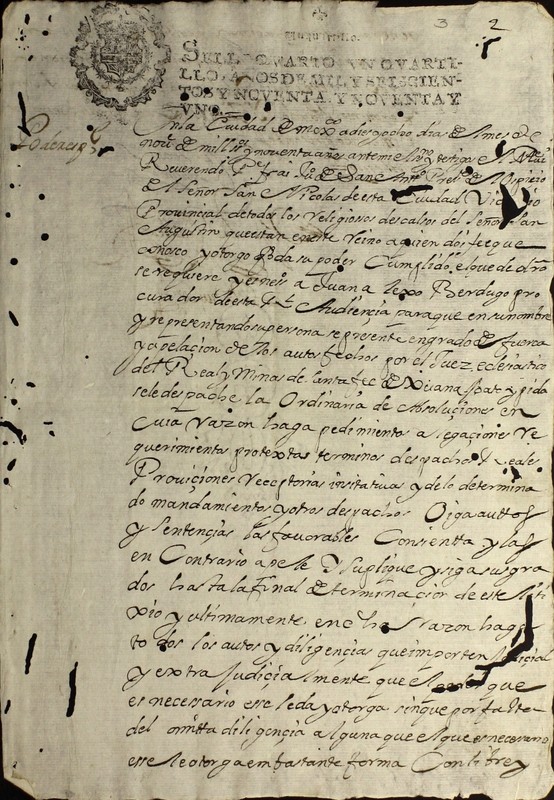 3 2
Un quartillo.
SELLO QVARTO, VN QVARTI-
LLO, AÑOS DE MIL Y SEISCIEN-
TOS Y NOVENTA, Y NOVENTA Y
VNO.
Poder
En la Ciudad de Mexco a dies y ocho dias del mes de
de mill y noventa años ante mi el y testigos el
Reverendo Pe frai Ju de San Anto del Ospicio
del Señor San Nicolas de esta Ciudad Vicario
Provincial de todos los religiosos descalsos del Señor San
Augustin que estan en este Reino a quien doi fee que
conosco y otorgo que da su poder Cumplido el que de dro
se requiere y es nes a Juan Alexo Berdugo pro
curador de esta Rl Audiencia para que en su nombre
y representando su persona se presente en grado de fuerca
y apelacion de los autos fechos por el Juez eclesiastico
del Real y Minas de Santa fee de Guanajuato y pida
se le despache la Ordinaria de Absoluciones en
Cuia razon haga pedimientos alegaciones re
querimientos protextas terminos despachos Reales
Proviciones receptorias insitativas y de lo determina
do mandamientos y otros despachos Oiga auttos
y sentencias las favorables Consienta y las
en Contrario apele y Suplique y siga sus gra
dos hasta la final determinacion de este liti
xio y ultimamente en dha razon haga
todos los autos y diligencias que importen Judicial
y extra Judicialmente que el poder que
es necessario ese le da y otorga sin que por falta
del omitta diligencia alguna que el que es necesario
ese le otorga en bastante forma Con libre y